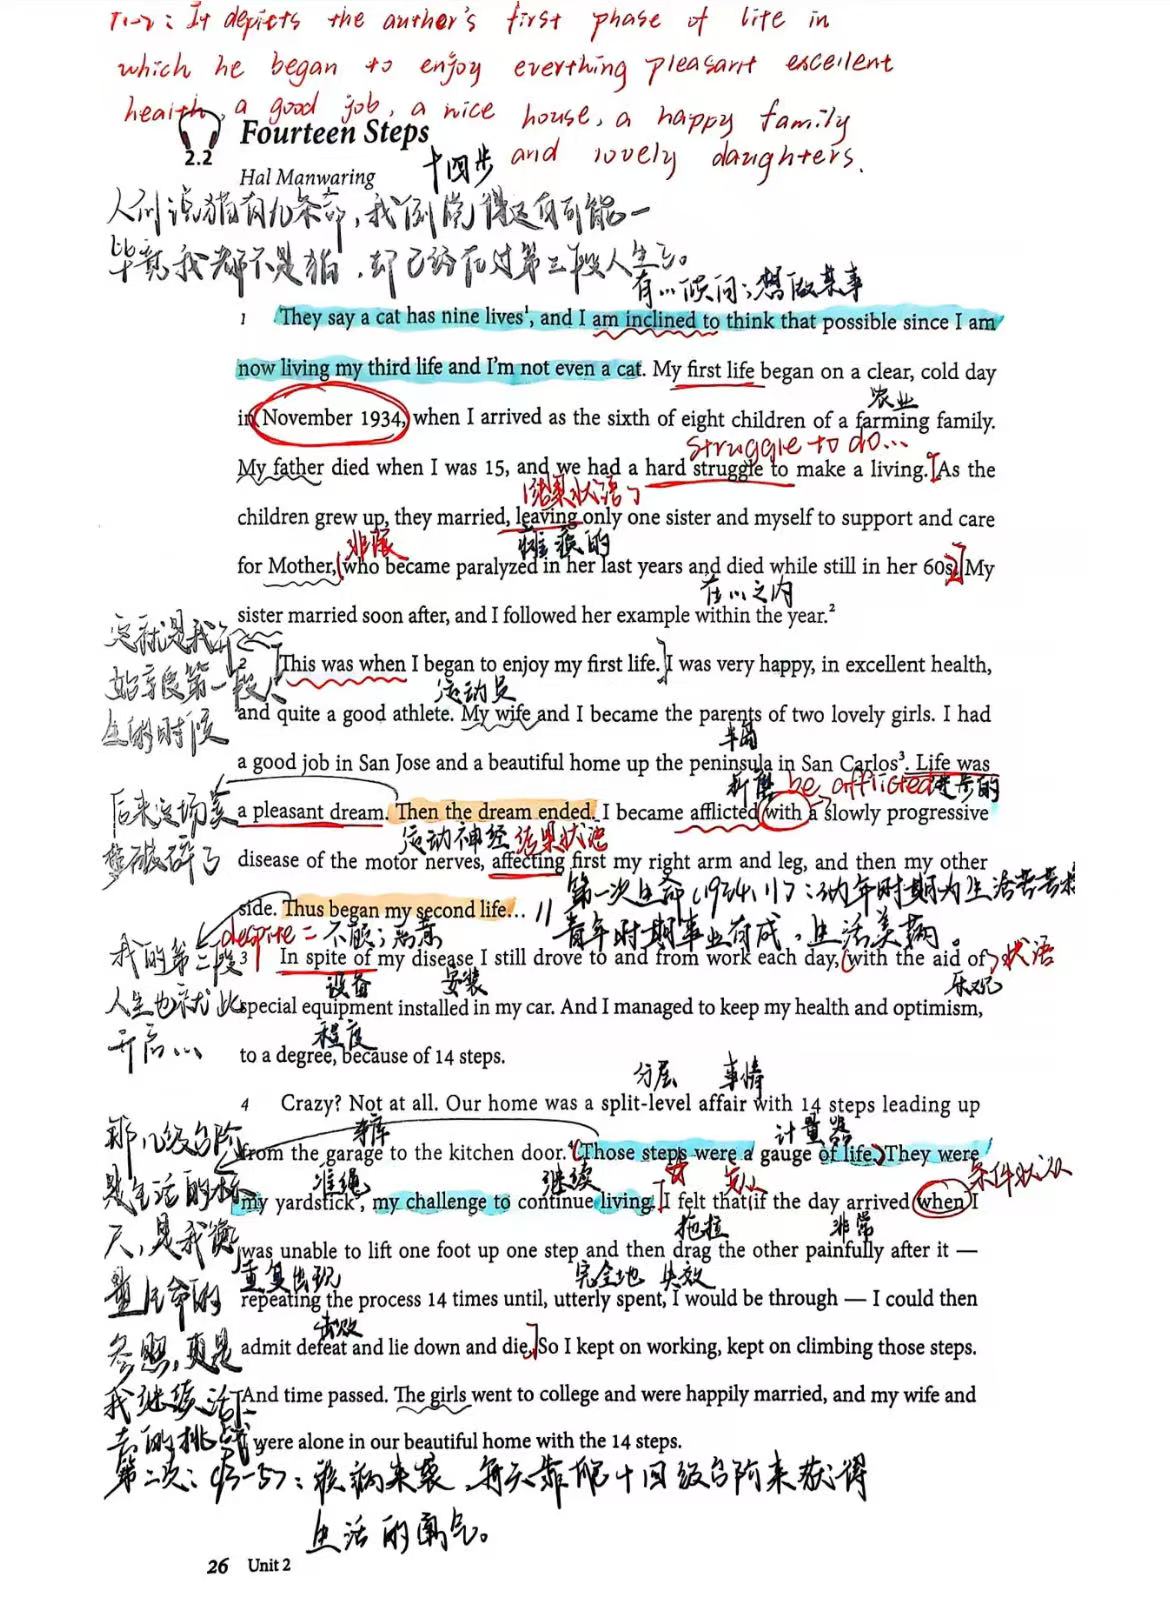 1~2: It depicts the author's first phase of life in
which he began to enjoy everthing pleasant excellent
health, a good job, a nice house, a happy family
and lovely daughters.
2.2
Fourteen Steps
十四步
Hal Manwaring
人们说猫有九条命,我倒觉得这有可能—
毕竟我都不是猫,却已经在过第三段人生了。
有…倾向;想做某事
1 They say a cat has nine lives¹, and I am inclined to think that possible since I am
now living my third life and I'm not even a cat. My first life began on a clear, cold day
农业
in November 1934, when I arrived as the sixth of eight children of a farming family.
struggle to do...
My father died when I was 15, and we had a hard struggle to make a living. As the
结果状语
children grew up, they married, leaving only one sister and myself to support and care
非限
瘫痪的
for Mother, who became paralyzed in her last years and died while still in her 60s. My
在…之内
sister married soon after, and I followed her example within the year.²
这就是我开
始享受第一段人
生的时候
2 This was when I began to enjoy my first life. I was very happy, in excellent health,
运动员
and quite a good athlete. My wife and I became the parents of two lovely girls. I had
半岛
a good job in San Jose and a beautiful home up the peninsula in San Carlos³. Life was
折磨 be afflicted 进步的
后来这场美
梦破碎了
a pleasant dream. Then the dream ended. I became afflicted with a slowly progressive
运动神经 结果状语
disease of the motor nerves, affecting first my right arm and leg, and then my other
第一次生命(1934.11):幼年时期为生活苦苦挣
side. Thus began my second life...
青年时期事业有成,生活美满。
despite = 不顾;恶意
我的第二段
人生也就此
开启…
3 In spite of my disease I still drove to and from work each day, with the aid of
状语
设备 安装 乐观
special equipment installed in my car. And I managed to keep my health and optimism,
程度
to a degree, because of 14 steps.
分层 事情
4 Crazy? Not at all. Our home was a split-level affair with 14 steps leading up
车库 计量器
那几级台阶
是生活的标
尺,是我衡
量生命的
参照,更是
我继续活下
去的挑战
from the garage to the kitchen door.⁴ Those steps were a gauge of life. They were
准绳 继续 条件状从
my yardstick, my challenge to continue living. I felt that if the day arrived when I
拖拉 非常
was unable to lift one foot up one step and then drag the other painfully after it —
重复出现 完全地 失效
repeating the process 14 times until, utterly spent, I would be through — I could then
击败
admit defeat and lie down and die. So I kept on working, kept on climbing those steps.
And time passed. The girls went to college and were happily married, and my wife and
I were alone in our beautiful home with the 14 steps.
第二次:(¶3-5):疾病来袭,每天靠爬十四级台阶来获得
生活的勇气。
26 Unit 2